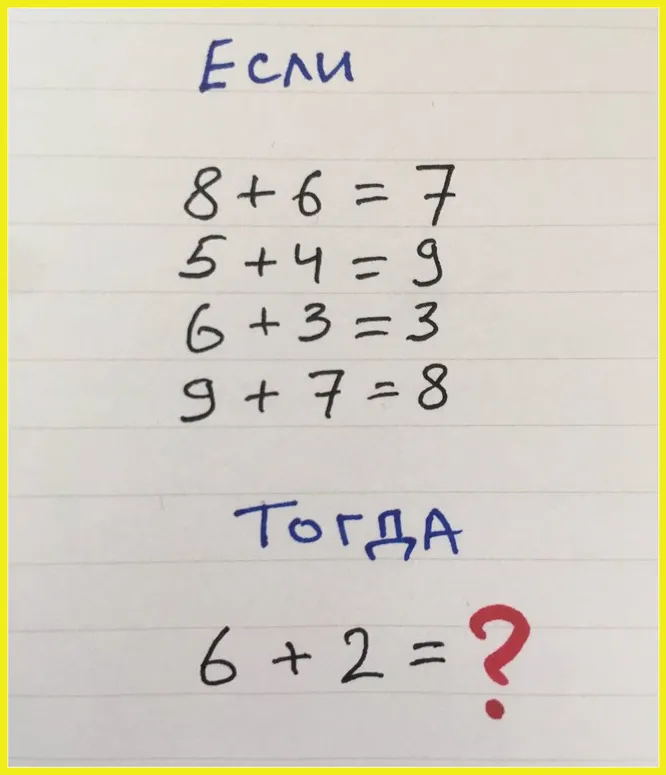 Если
8 + 6 = 7
5 + 4 = 9
6 + 3 = 3
9 + 7 = 8
Тогда
6 + 2 = ?